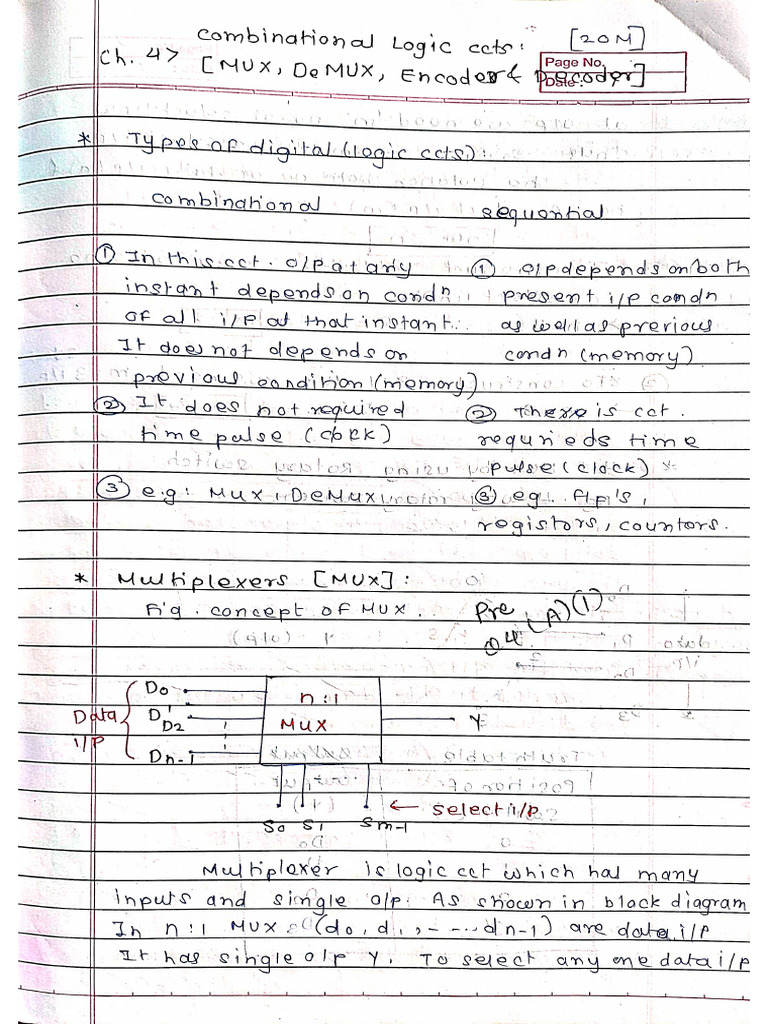 Combinational Logic ccts: [20M]
Ch. 4> [MUX, DeMUX, Encoder & Decoder]
Page No.
Date :
* Types of digital (logic ccts):
combinational sequential
① In this cct. o/p at any ① o/p depends on both
instant depends on condn present i/p condn
of all i/p at that instant. as well as previous
It does not depends on condn (memory)
previous condition (memory)
② It does not required ② There is cct.
time pulse (clock) requrieds time
pulse (clock)
③ e.g: Mux, DeMux ③ eg. f/p's,
registors, countors.
* Multiplexers [MUX]:
Fig. concept of MUX. Pre
Q4 (A) (1)
D0
n:1
Data D1
D2 MUX Y
i/p
Dn-1
← select i/p
S0 S1 Sm-1
Multiplexer is logic cct which has many
inputs and single o/p. As shown in block diagram
In n:1 MUX (d0, d1, - - - - dn-1) are data i/p
It has single o/p Y. To select any one data i/p